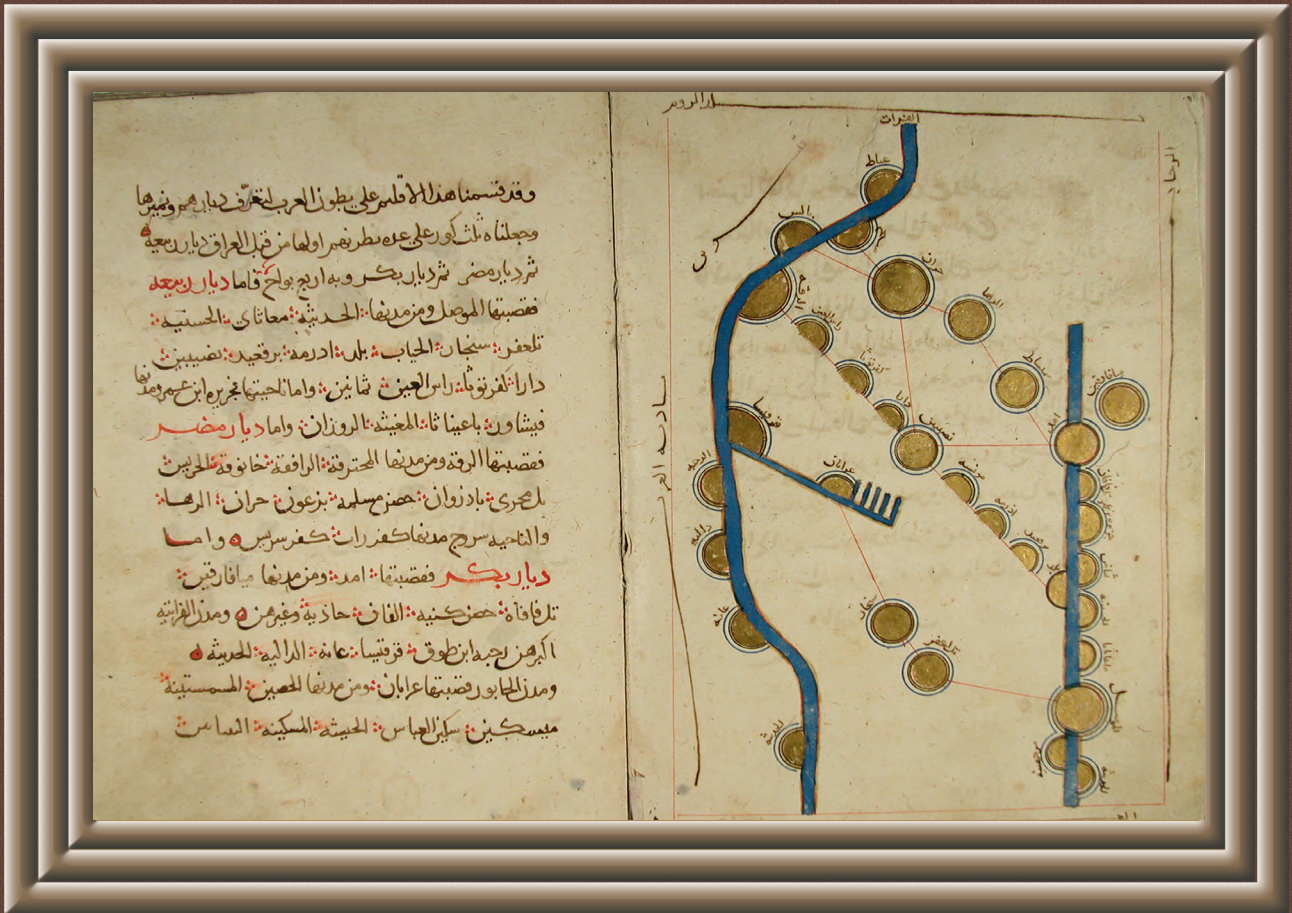 وقد قسمنا هذا الاقليم على بطون العرب لتعرف ديارهم وتميزها
وجعلناه ثلث كور على عدة بطونهم اولها من قبل العراق ديار ربيعه
ثم ديار مضر ثم ديار بكر وبه اربع نواح فاما ديار ربيعه
فقصبتها الموصل ومن مدنها الحديثه معلثاى الحسنيه
تلعفر سنجار الجبال بلد ادرمه برقعيد نصيبين
دارا كفرتوثا راس العين ثمانين واما ناحيتها فجزيره ابن عمر ومدنها
فيشاور باعيناثا المغيثه الزوزان واما ديار مضر
فقصبتها الرقه ومن مدنها المحترقه الرافقه خانوقه الحريش
تل محرى باذروان حصن مسلمه برعوز حران الرها
والناحيه سروج مدنها كفر زاب كفر سرين واما
ديار بكر فقصبتها امد ومن مدنها ميافارقين
تل فافان حصن كيفيه الفان حاذيه وغيرهن ومدن الفراتيه
اكبرهن رحبه ابن طوق قرقيسا عانه الداليه الحديثه
ومدن الخابور قصبتها عرابان ومن مدنها الحصين السمسينيه
ميسكين سكير العباس الخيشه المسكينه التنانير
الفرات
بالس
حران
الرها
نصيبين
دارا
كفرتوثا
راس العين
قرقيسيا
الرحبه
داليه
عانه
الحديثه
عرابان
سنجار
تل اعفر
امد
ميافارقين